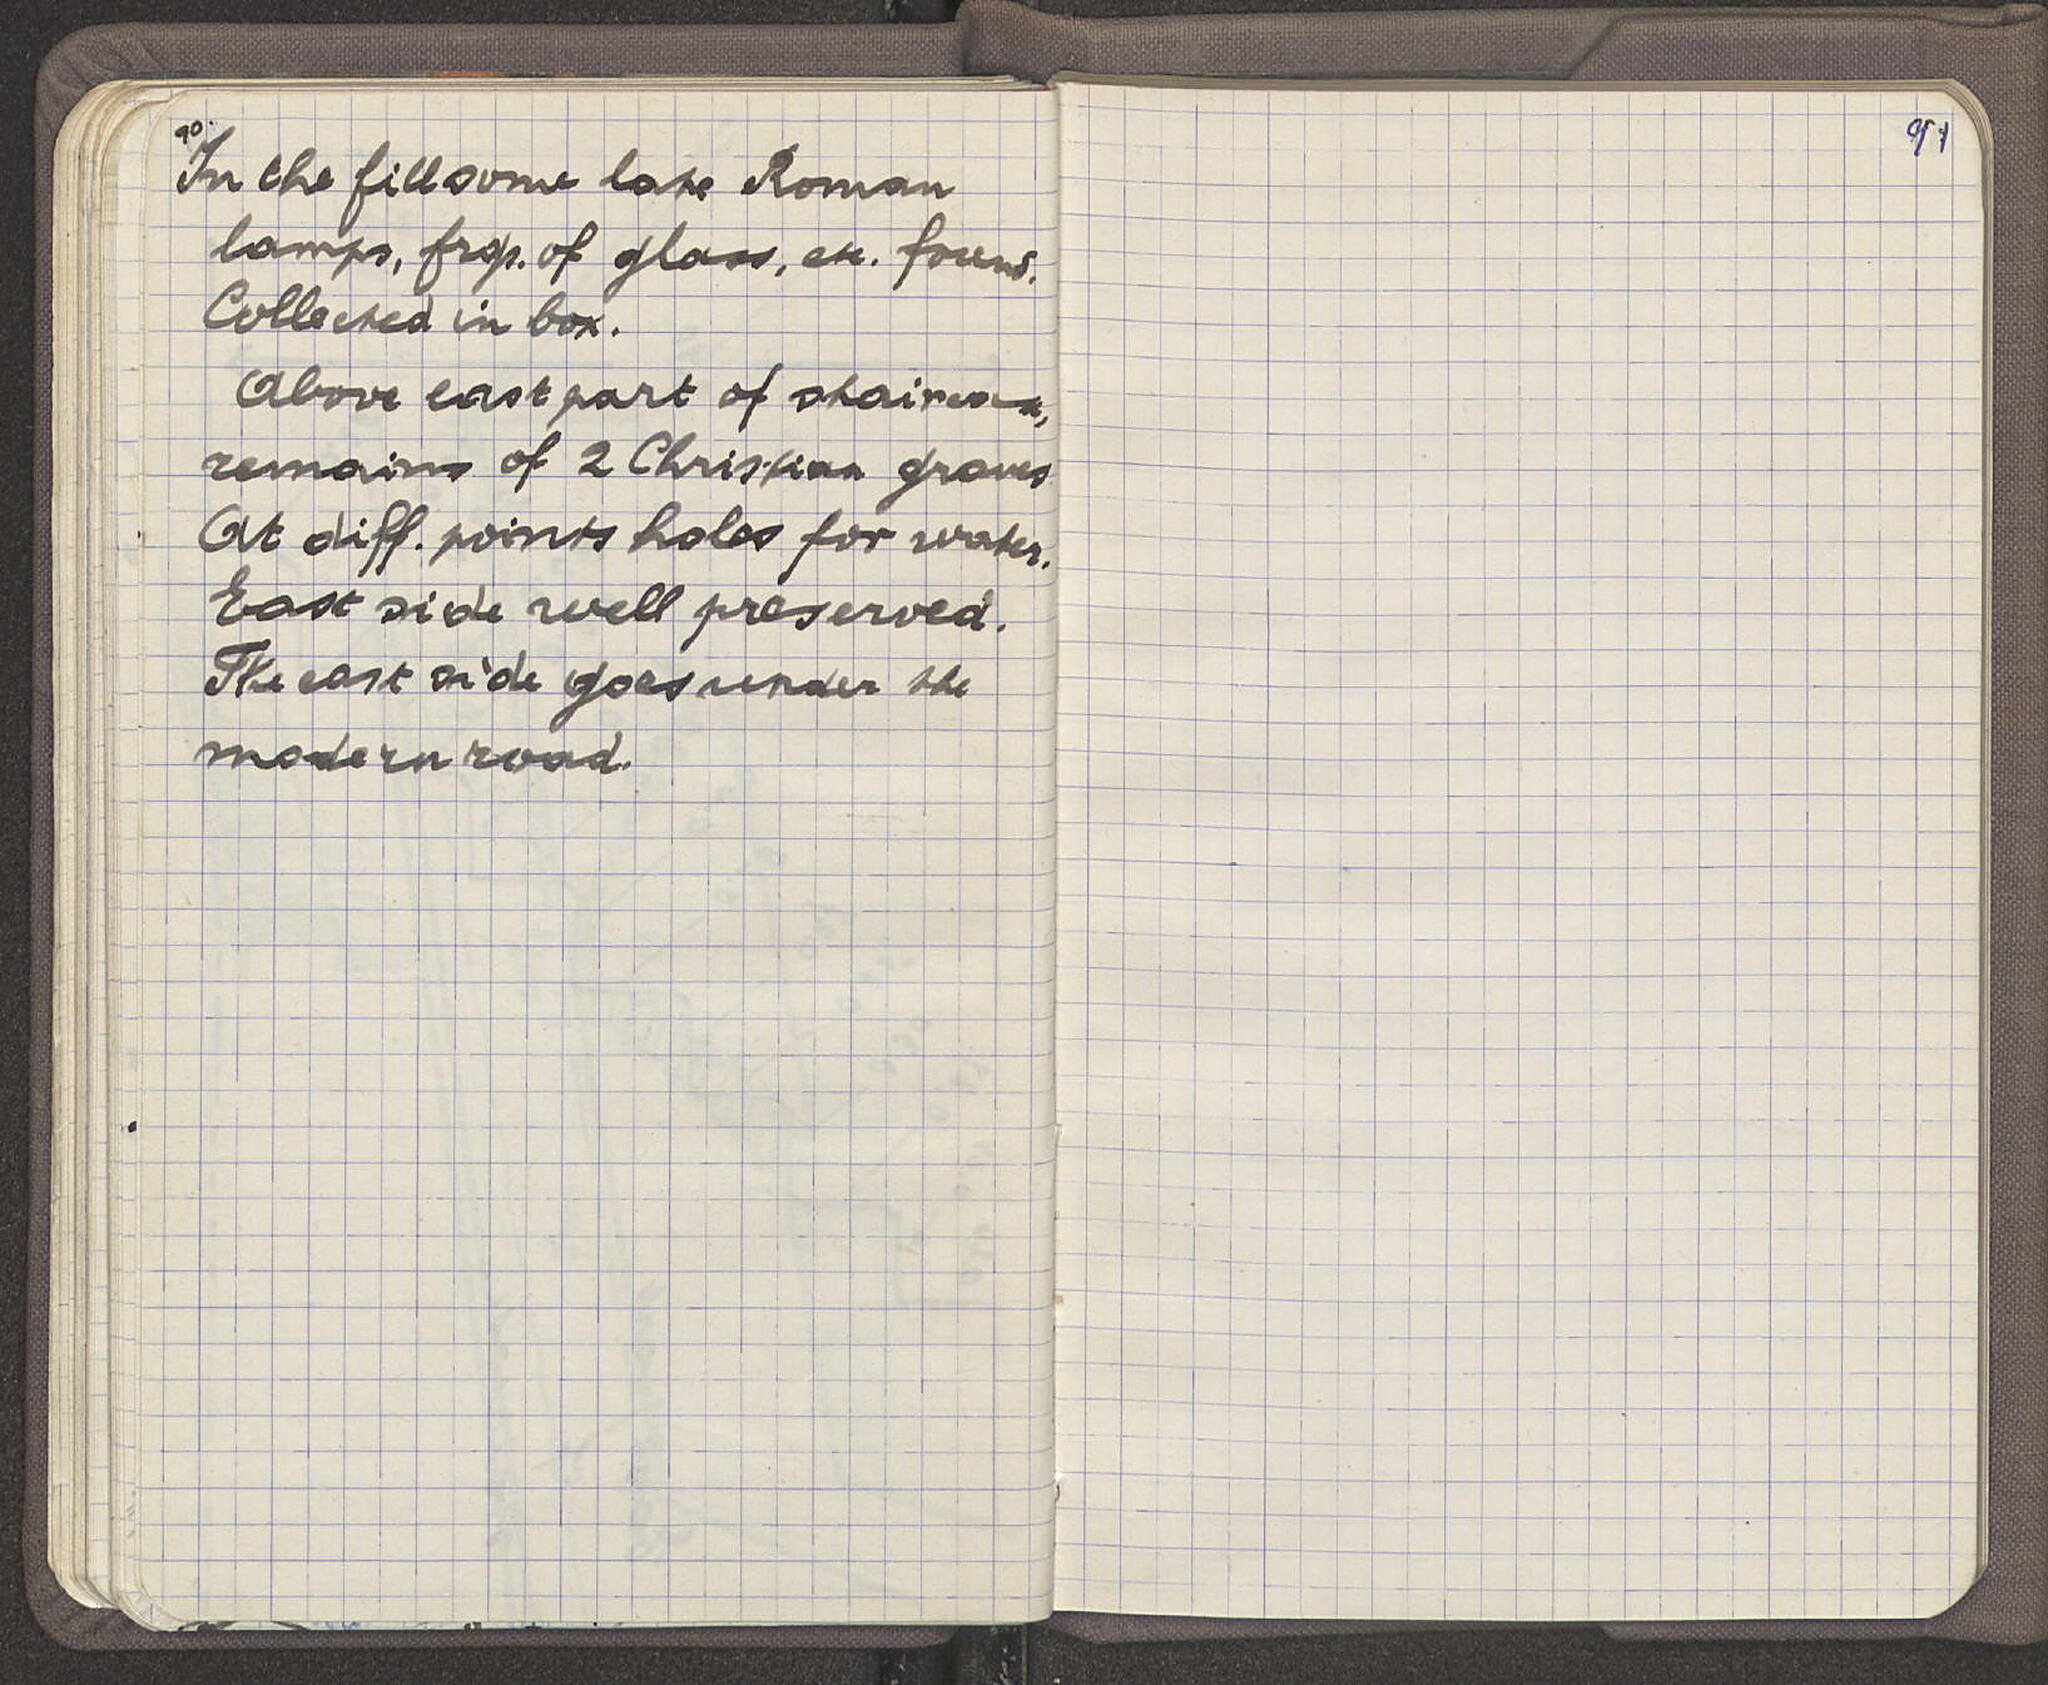 90.
In the fill some late Roman
lamps, frgs. of glass, etc. found.
Collected in box.
Above east part of staircase,
remains of 2 Christian graves
At diff. points holes for water.
East side well preserved.
The east side goes under the
modern road.
91